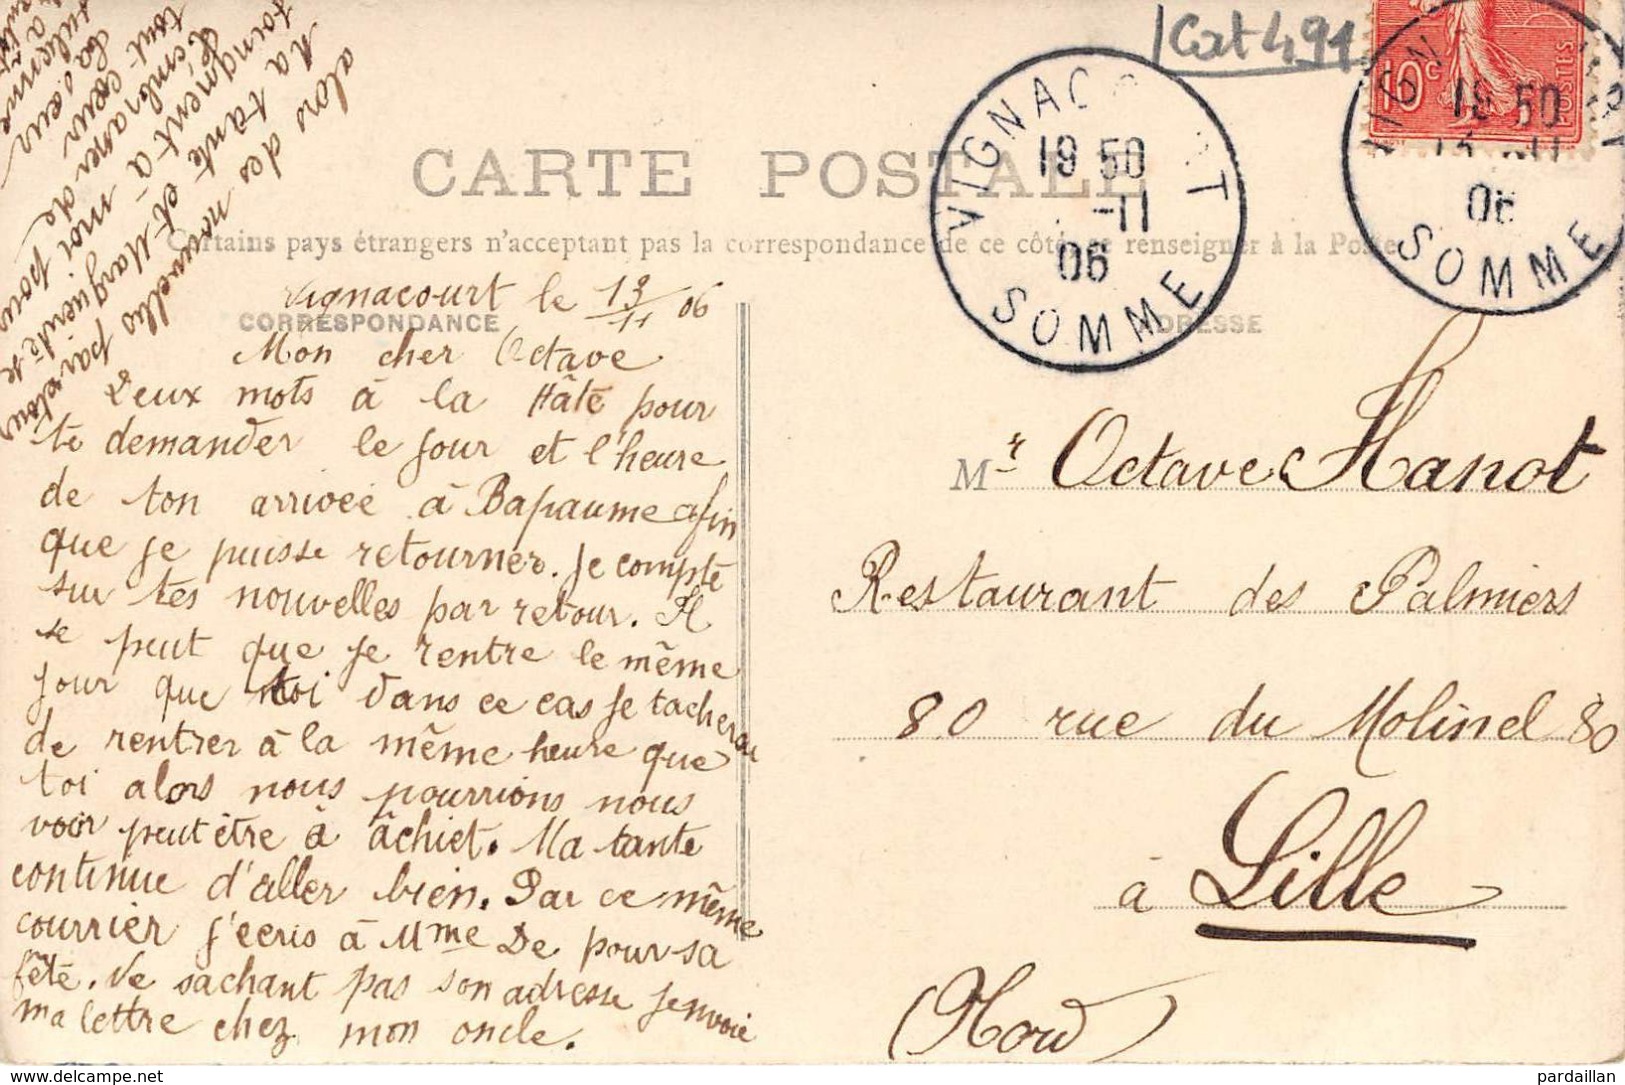 Cat 491
VIGNACOURT
19 50
-11
06
SOMME
10c
POSTES
19 50
13 -11
06
SOMME
CARTE POSTALE
Certains pays étrangers n'acceptant pas la correspondance de ce côté, se renseigner à la Poste
CORRESPONDANCE
ADRESSE
Vignacourt le 13/11 06
Mon cher Octave
Deux mots à la Hâte pour
te demander le jour et l'heure
de ton arrivée à Bapaume afin
que je puisse retourner. Je compte
sur tes nouvelles par retour. Il
se peut que je rentre le même
jour que toi dans ce cas je tacherai
de rentrer à la même heure que
toi alors nous pourrions nous
voir peut être à âchiet. Ma tante
continue d'aller bien. Par ce même
courrier j'écris à Mme De pour sa
fête. Ne sachant pas son adresse j'envoie
ma lettre chez mon oncle.
alors des nouvelles par retour
Ma tante et Marguerite se
joignent à moi pour
t'embrasser de
tout cœur
Ta sœur
Mr Octave Hanot
Restaurant des Palmiers
80 rue du Molinel 80
à Lille
(Nord)
delcampe.net
pardaillan